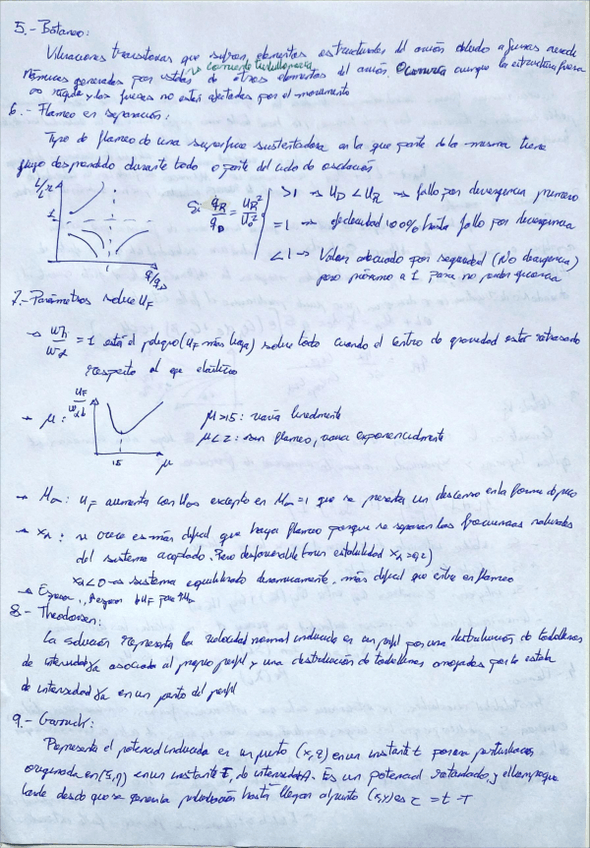 5.- Bataneo:
Vibraciones transitorias que sufren elementos estructurales del avión debido a fuerzas aerodi
námicas generadas por estelas de otros elementos del avión. Ocurriría aunque la estructura fuera
ó corriente turbillonaria
∞ rígida y las fuerzas no están afectadas por el movimiento
6.- Flameo en separación:
Tipo de flameo de una superficie sustentadora en la que parte de la misma tiene
flujo desprendido durante todo o parte del ciclo de oscilación
L/Lr
1
1
q/qD
Si qR/qD = UR²/UD²
>1 → UD < UR → fallo por divergencia primero
=1 → efectividad 100% hasta fallo por divergencia
<1 → Valor adecuado por seguridad (No divergencia)
pero próximo a 1 para no perder
7.- Parámetros sobre UF
→ ωh/ωα = 1 está el peligro (UF más baja) sobre todo cuando el centro de gravedad está retrasado
respecto al eje elástico
→ μ: UF/ωαb
15
μ
μ>15: varía linealmente
μ<2: sin flameo, varía exponencialmente
→ M∞: UF aumenta con M∞ excepto en M∞=1 que se presenta un descenso en la forma de pico
→ xα: si crece es más difícil que haya flameo porque se separan las frecuencias naturales
del sistema acoplado. Pero desfavorable estabilidad xα>0,2)
xα<0 → sistema equilibrado dinámicamente, más difícil que entre en flameo
8.- Theodorsen:
La solución representa la velocidad normal inducida en un perfil por una distribución de torbellinos
de intensidad γa asociada al propio perfil y una distribución de torbellinos arrojados por la estela
de intensidad γa en un punto del perfil
9.- Garrick:
Representa el potencial inducido en un punto (x,z) en un instante t por una perturbación
originada en (ξ,η) en un instante T, de intensidad A. Es un potencial retardado, y el tiempo que
tarda desde que se genera la perturbación hasta llegar al punto (x,y) es τ = t - T